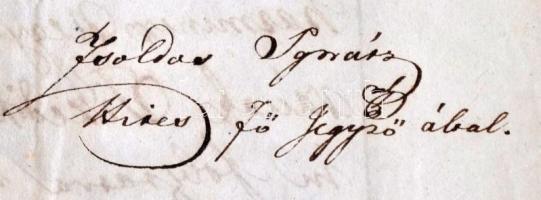 Zsoldos Ignátz
Hites fő Jegyző által.